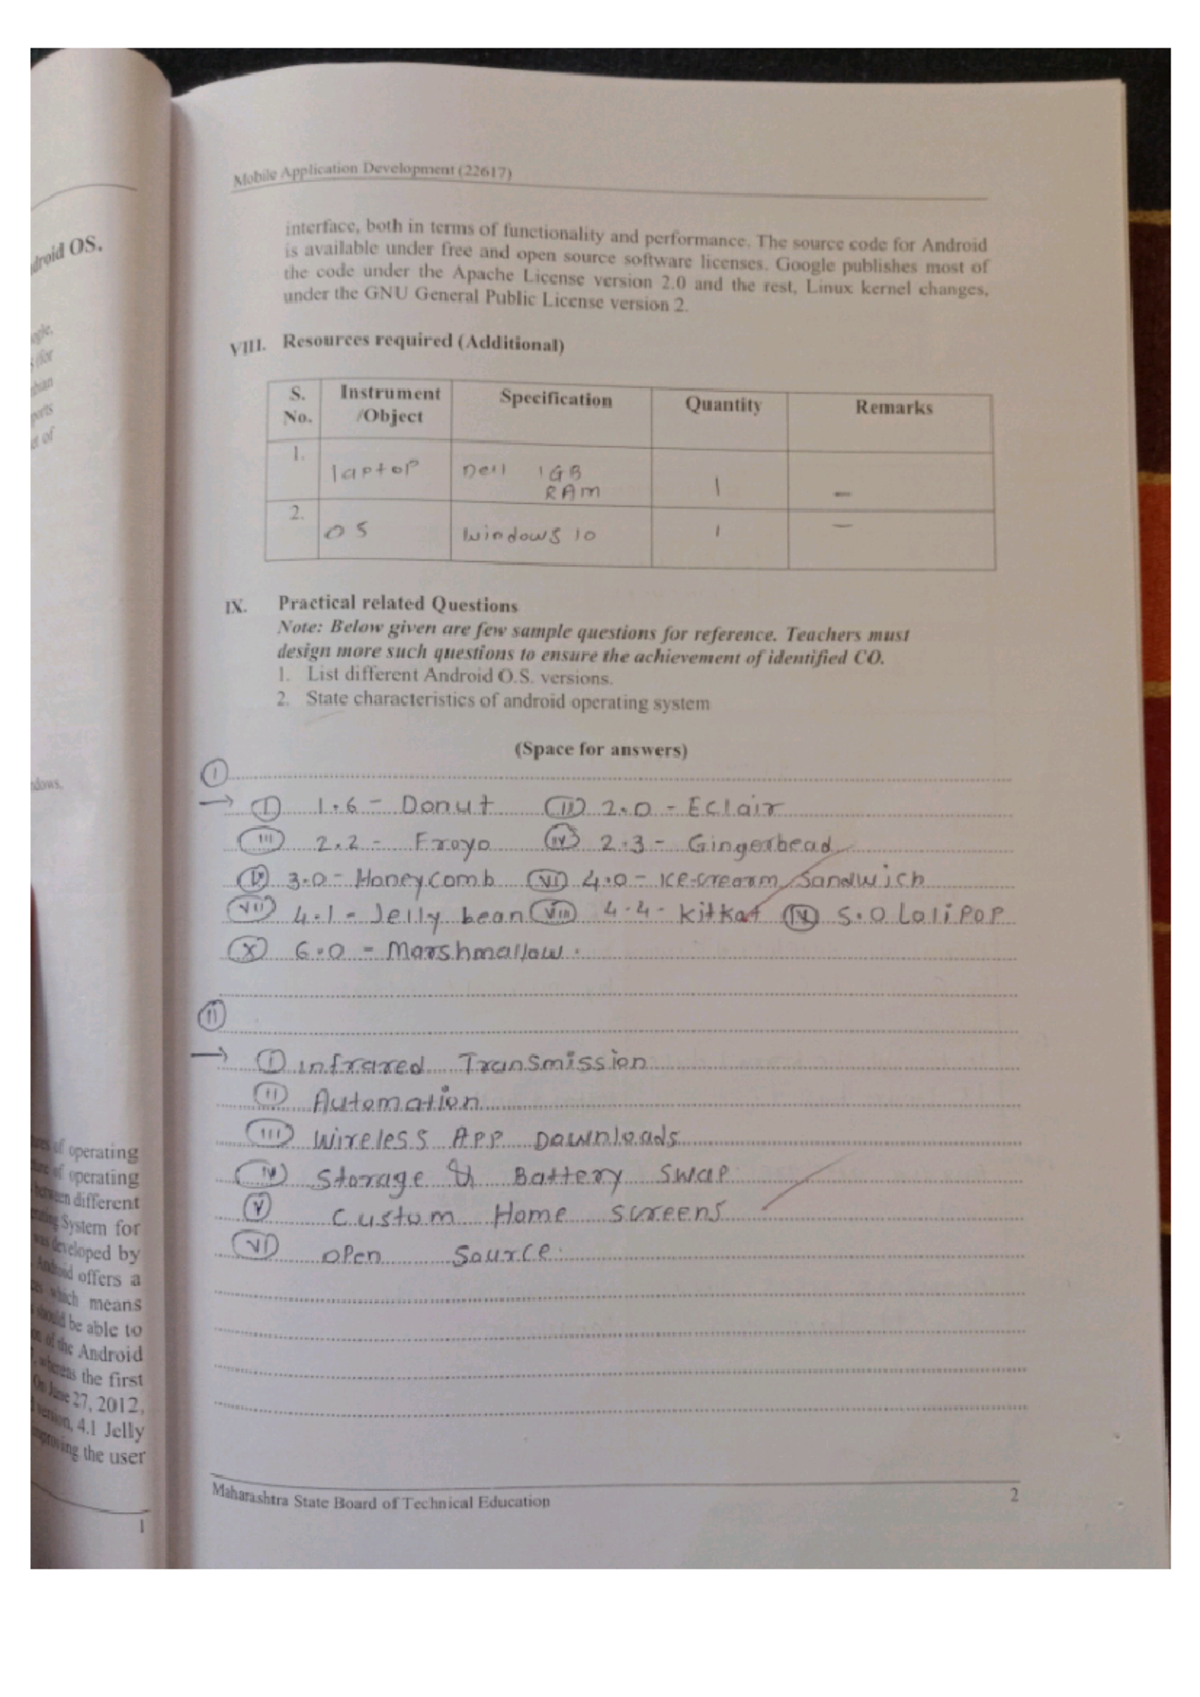 Mobile Application Development (22617)
interface, both in terms of functionality and performance. The source code for Android
is available under free and open source software licenses. Google publishes most of
the code under the Apache License version 2.0 and the rest, Linux kernel changes,
under the GNU General Public License version 2.
VIII. Resources required (Additional)
S. No. Instrument /Object Specification Quantity Remarks
1. laptop Dell 1GB RAM 1 –
2. OS Windows 10 1 –
IX. Practical related Questions
Note: Below given are few sample questions for reference. Teachers must
design more such questions to ensure the achievement of identified CO.
1. List different Android O.S. versions.
2. State characteristics of android operating system
(Space for answers)
I
→ I 1.6 - Donut II 2.0 - Eclair
III 2.2 - Froyo IV 2.3 - Gingerbead
V 3.0 - Honeycomb VI 4.0 - Ice-crearm Sandwich
VII 4.1 - Jelly bean VIII 4.4 - Kitkat IX 5.0 Lolipop
X 6.0 - Marshmallow.
II
→ I Infrared Transmission
II Automation
III Wireless App Downloads
IV Storage & Battery swap
V Custom Home screens
VI Open Source.
Maharashtra State Board of Technical Education 2
droid OS.
ndows.
of operating
of operating
different
System for
was developed by
Android offers a
which means
should be able to
of the Android
whereas the first
On June 27, 2012,
version, 4.1 Jelly
improving the user
1